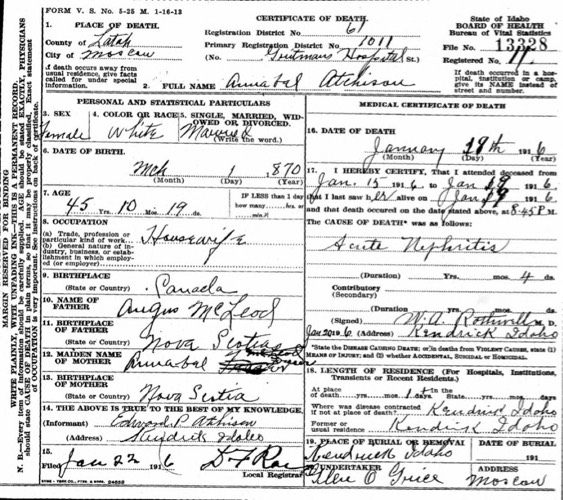 FORM V. S. No. 5-25 M. 1-16-13
CERTIFICATE OF DEATH
State of Idaho
BOARD OF HEALTH
Bureau of Vital Statistics
1. PLACE OF DEATH.
Registration District No. 61
File No. 13328
County of Latah
Primary Registration District No. 1011
Registered No. 11
City of Moscow
(No. Gritmans Hospital St.)
If death occurs away from usual residence, give facts called for under special information.
2. FULL NAME Annabal Atchison
If death occurred in a hospital, institution or camp, give its NAME instead of street and number.
PERSONAL AND STATISTICAL PARTICULARS
3. SEX
Female
4. COLOR OR RACE
White
5. SINGLE, MARRIED, WIDOWED OR DIVORCED.
Married
(Write the word.)
6. DATE OF BIRTH
Mch 1 1870
(Month) (Day) (Year)
7. AGE
45 Yrs. 10 Mos. 19 ds.
IF LESS than 1 day
how many hrs. or
min.?
8. OCCUPATION
(a) Trade, profession or particular kind of work
Housewife
(b) General nature of industry, business, or establishment in which employed (or employer)
9. BIRTHPLACE
(State or Country) Canada
10. NAME OF FATHER
Angus McLeod
11. BIRTHPLACE OF FATHER
(State or Country) Nova Scotia
12. MAIDEN NAME OF MOTHER
Annabal
13. BIRTHPLACE OF MOTHER
(State or Country) Nova Scotia
14. THE ABOVE IS TRUE TO THE BEST OF MY KNOWLEDGE.
(Informant) Edward P. Atchison
(Address) Kendrick Idaho
15.
Filed Jan 22 1916
Local Registrar
MEDICAL CERTIFICATE OF DEATH
16. DATE OF DEATH
January 19th 1916
(Month) (Day) (Year)
17. I HEREBY CERTIFY, That I attended deceased from
Jan. 15 1916 to Jan 19 1916
that I last saw her alive on Jan 19 1916
and that death occured on the date stated above, at 8:45 P M.
The CAUSE OF DEATH* was as follows:
Acute Nephritis
(Duration) Yrs. mos. 4 ds.
Contributory
(Secondary)
(Duration) Yrs. mos. ds.
(Signed) W.A. Rothwell M. D.
Jan 20 1916 (Address) Kendrick Idaho
*State the DISEASE CAUSING DEATH; or in deaths from VIOLENT CAUSES, state (1) MEANS OF INJURY; and (2) whether ACCIDENTAL, SUICIDAL or HOMICIDAL.
18. LENGTH OF RESIDENCE (For Hospitals, Institutions, Transients or Recent Residents.)
Where was disease contracted
if not at place of death? Kendrick Idaho
Former or
usual residence Kendrick Idaho
19. PLACE OF BURIAL OR REMOVAL
Kendrick Idaho
DATE OF BURIAL
191
20. UNDERTAKER
Glen O Grice
ADDRESS
Moscow
MARGIN RESERVED FOR BINDING
WRITE PLAINLY, WITH UNFADING INK—THIS IS A PERMANENT RECORD.
N. B.—Every item of information should be carefully supplied. AGE should be stated EXACTLY. PHYSICIANS should state CAUSE OF DEATH in plain terms, so that it may be properly classified. Exact statement of OCCUPATION is very important. See instructions on back of certificate.